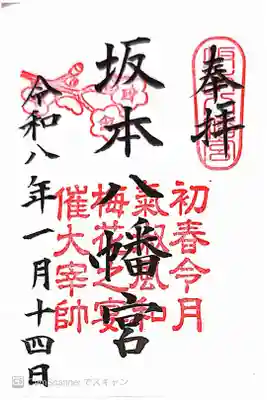 奉拝
坂本八幡宮
初春令月
氣淑風和
梅花之宴
催大宰帥
令和八年一月十四日
CamScanner でスキャン